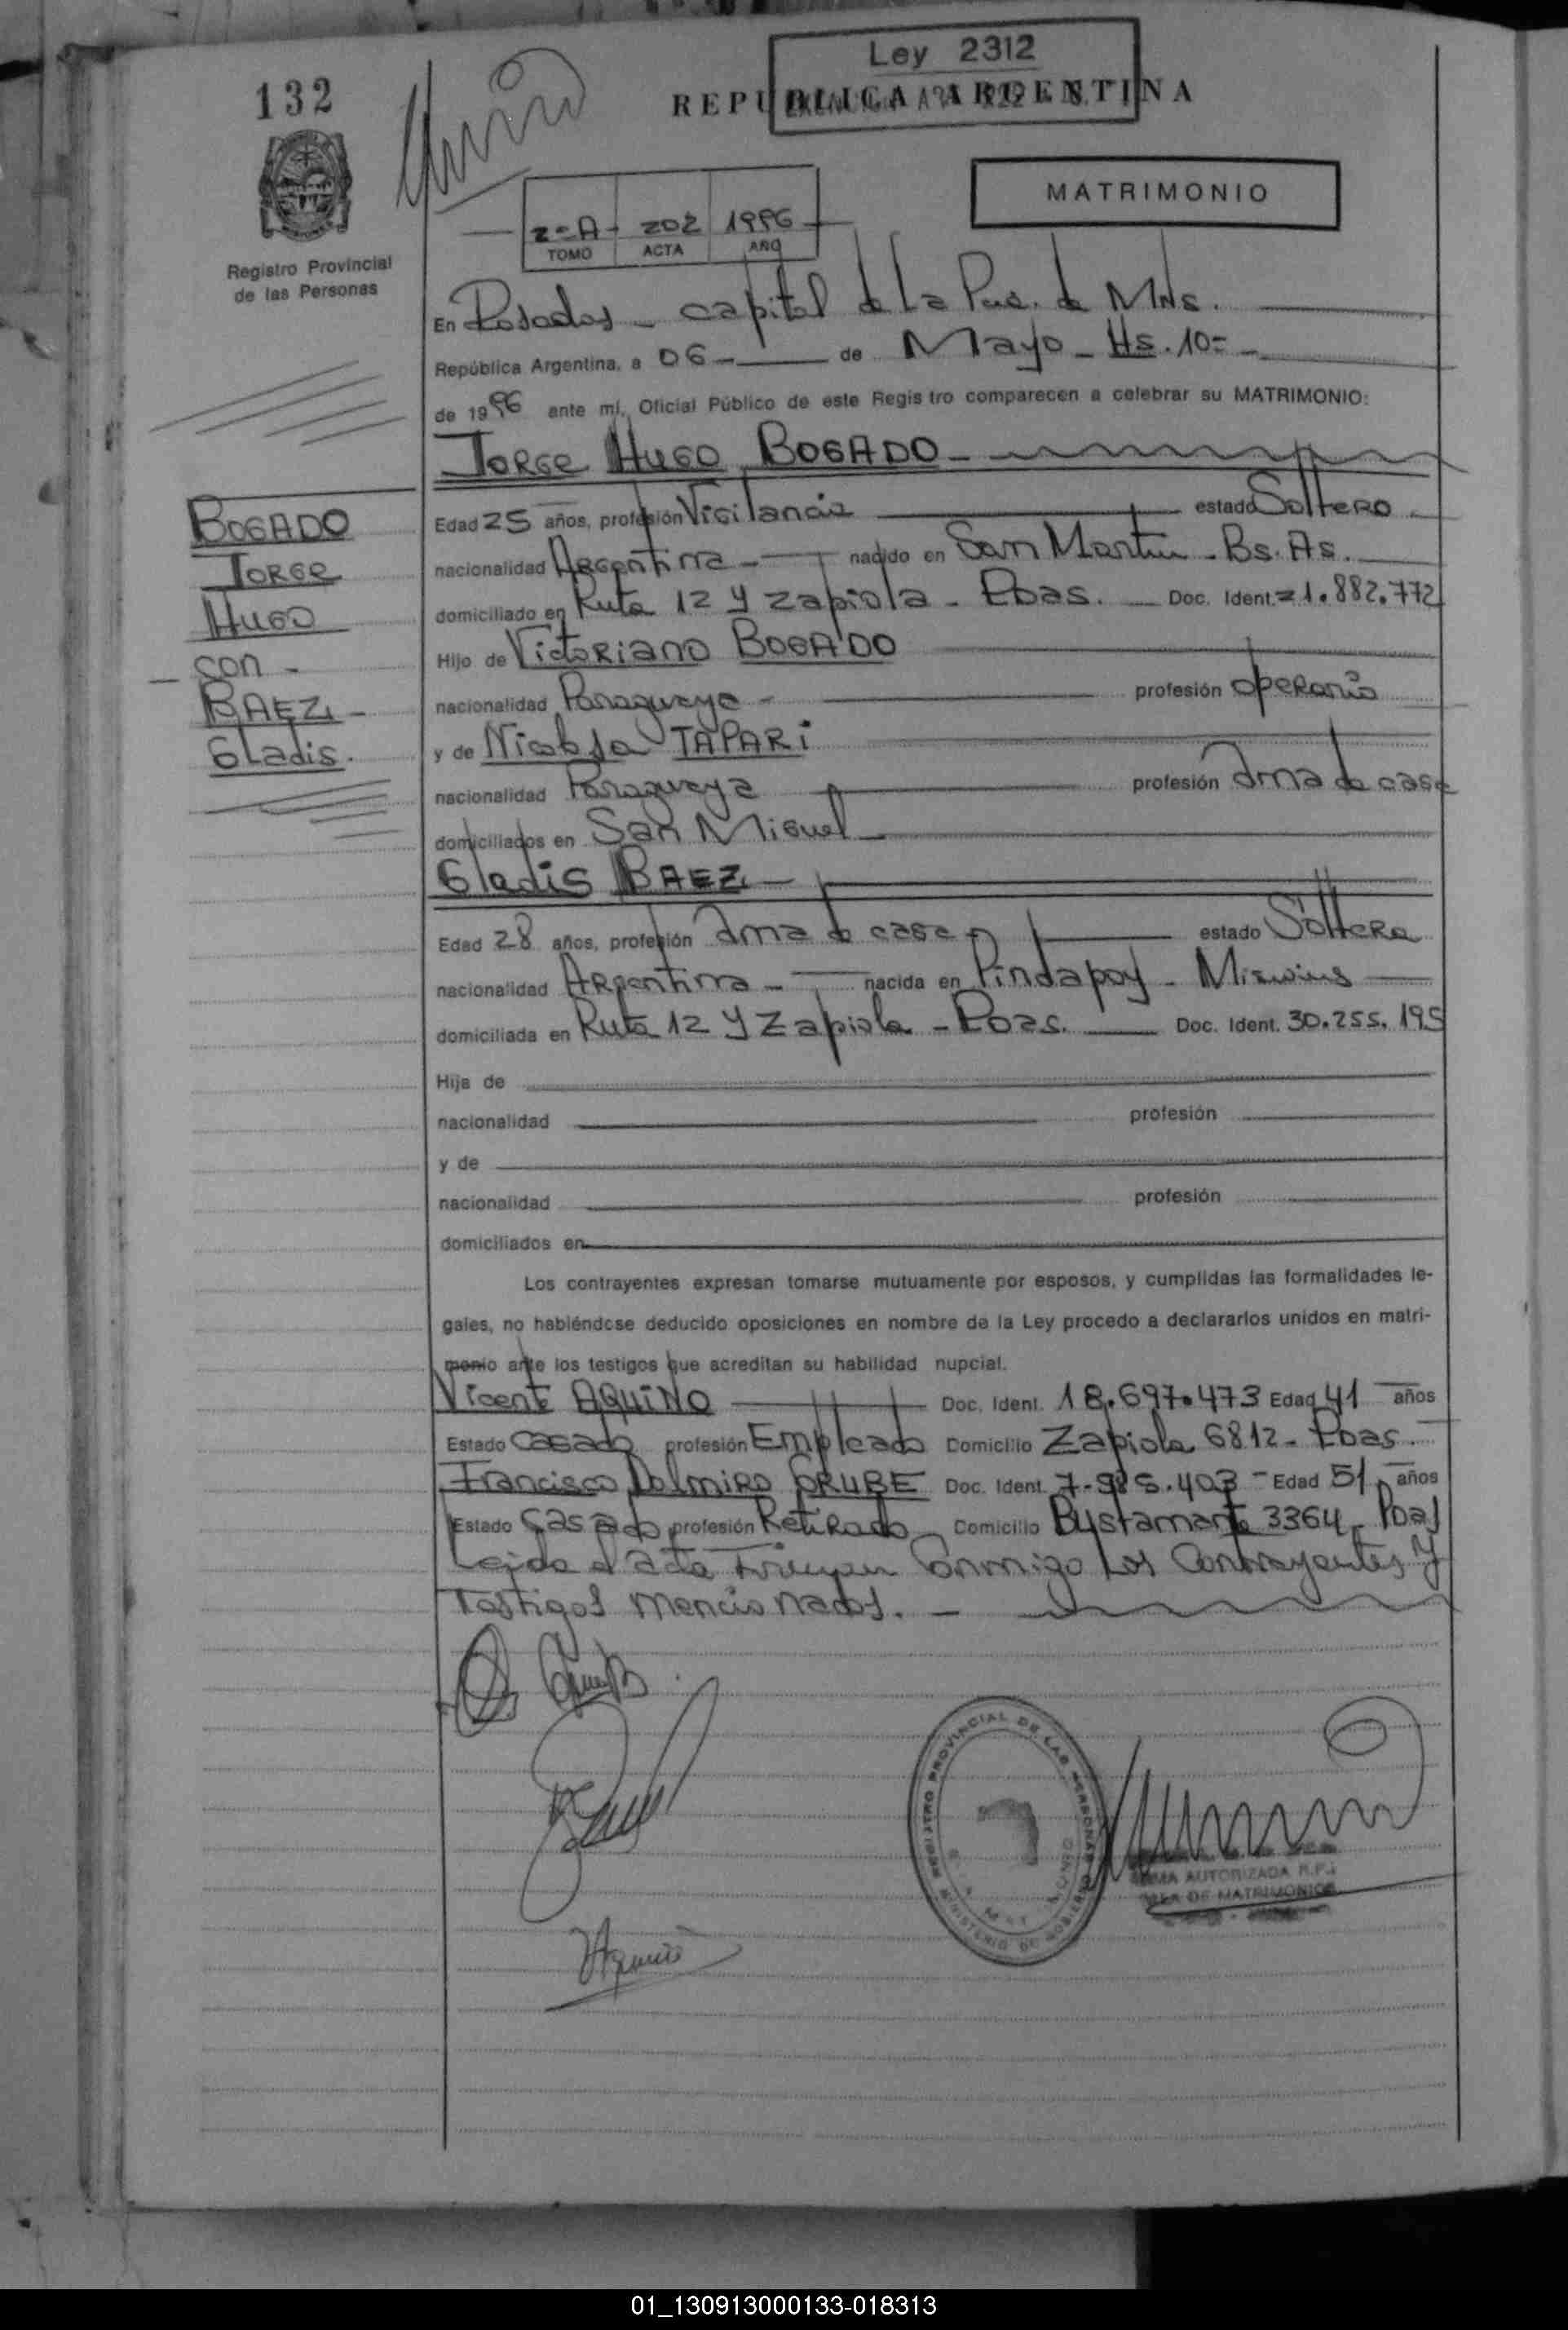 132
Ley 2312
REPUBLICA ARGENTINA
MATRIMONIO
2-A- 202 1996
TOMO ACTA AÑO
Registro Provincial
de las Personas
En Posadas - capital de La Pcia. de Mnes.
República Argentina, a 06 - de Mayo - Hs. 10=
de 1996 ante mí, Oficial Público de este Registro comparecen a celebrar su MATRIMONIO:
JORGE HUGO BOGADO
BOGADO
JORGE
HUGO
- con -
BAEZ -
GLadis.
Edad 25 años, profesión Vigilancia estado Soltero
nacionalidad Argentina - nacido en San Martin - Bs. As.
domiciliado en Ruta 12 y Zapiola - Pdas. Doc. Ident. 21.882.772
Hijo de Victoriano BOGADO
nacionalidad Paraguaya - profesión operario
y de Nicolasa TAPARI
nacionalidad Paraguaya profesión Ama de casa
domiciliados en San Miguel -
Gladis BAEZ -
Edad 28 años, profesión Ama de casa - estado Soltera
nacionalidad Argentina - nacida en Pindapoy - Misiones
domiciliada en Ruta 12 y Zapiola - Pdas. Doc. Ident. 30.255.195
Hija de
nacionalidad profesión
y de
nacionalidad profesión
domiciliados en
Los contrayentes expresan tomarse mutuamente por esposos, y cumplidas las formalidades le-
gales, no habiéndose deducido oposiciones en nombre de la Ley procedo a declararlos unidos en matri-
monio ante los testigos que acreditan su habilidad nupcial.
Vicente AQUINO Doc. Ident. 18.697.473 Edad 41 años
Estado Casado profesión Empleado Domicilio Zapiola 6812 - Pdas.
Francisco Dalmiro GRUBE Doc. Ident. 7.985.403 - Edad 51 años
Estado Casado profesión Retirado Domicilio Bustamante 3364 - Pdas
Leida el acta Firman Conmigo Los Contrayentes y
Testigos mencionados. -
REGISTRO PROVINCIAL DE LAS PERSONAS
MINISTERIO DE GOBIERNO
FIRMA AUTORIZADA R.P.
SALA DE MATRIMONIOS
01_130913000133-018313